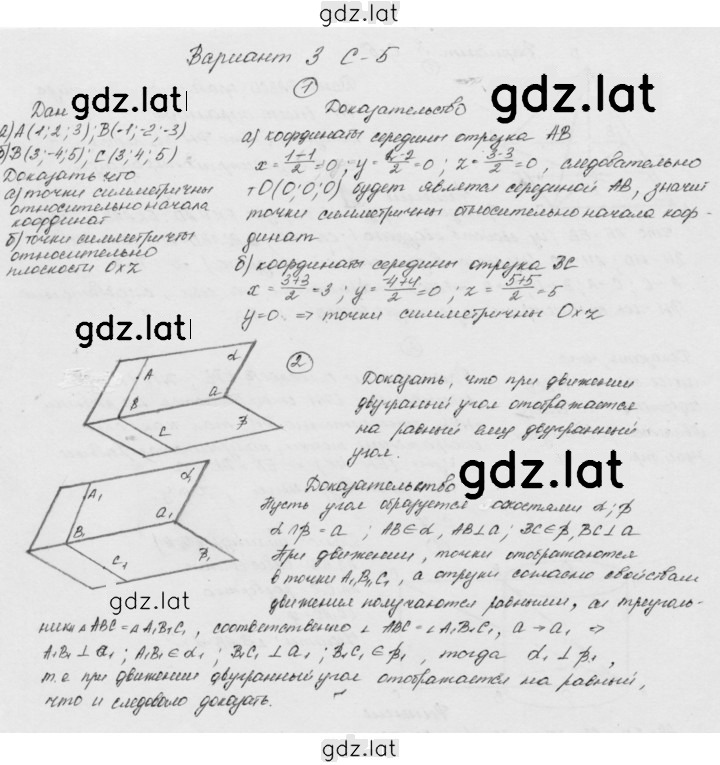 gdz.lat
Вариант 3 С-5
gdz.lat
gdz.lat
1
Дан
а) А(1; 2; 3); В(-1; -2; -3)
б) В(3; -4; 5); С(3; 4; 5)
Доказать что
а) точки симметричны
относительно начала
координат
б) точки симметричны
относительно
плоскости Oxz
Доказательство
а) координаты середины отрезка AB
x = (1-1)/2 = 0; y = (2-2)/2 = 0; z = (3-3)/2 = 0, следовательно
т O(0; 0; 0) будет являтся серединой AB, значит
точки симметричны относительно начала коор-
динат
б) координаты середины отрезка BC
x = (3+3)/2 = 3; y = (-4+4)/2 = 0; z = (5+5)/2 = 5
y=0 => точки симметричны Oxz
gdz.lat
2
A
α
B
a
C
β
Доказать, что при движении
двугранный угол отображается
на равный ему двугранный
угол.
gdz.lat
A1
α1
B1
a1
C1
β1
Доказательство
Пусть угол образуется скостями α; β
α ∩ β = a ; AB∈α, AB⊥a ; BC∈β, BC⊥a
При движении, точки отображаются
в точки A1, B1, C1, а отрезки согласно свойствам
движения получаются равными, а треуголь-
ники ΔABC = ΔA1B1C1, соответственно ∠ABC = ∠A1B1C1, a → a1 =>
A1B1 ⊥ a1 ; A1B1 ∈ α1 ; B1C1 ⊥ a1 ; B1C1 ∈ β1, тогда α1 ⊥ β1,
т.е при движении двугранный угол отображается на равный,
что и следовало доказать.
gdz.lat
gdz.lat